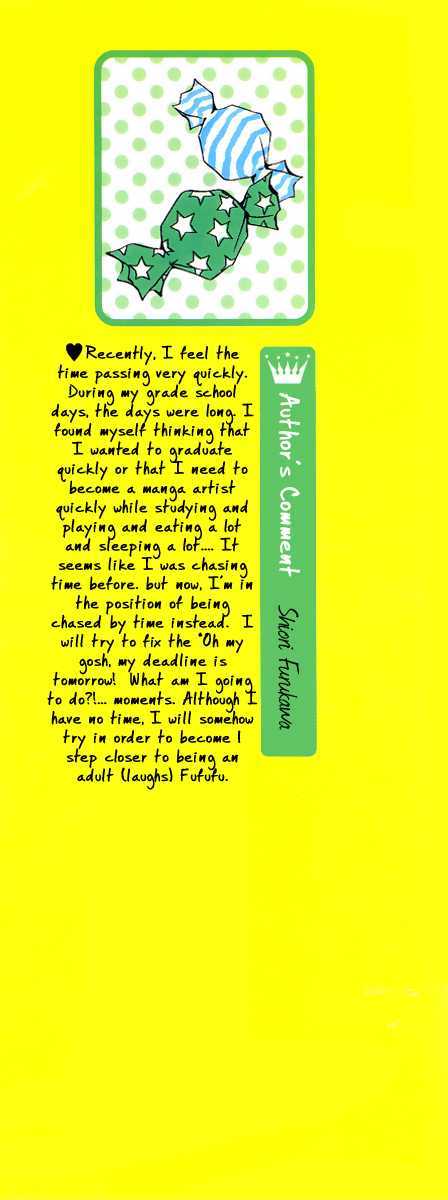 ♥Recently, I feel the
time passing very quickly.
During my grade school
days, the days were long. I
found myself thinking that
I wanted to graduate
quickly or that I need to
become a manga artist
quickly while studying and
playing and eating a lot
and sleeping a lot.... It
seems like I was chasing
time before. but now, I'm in
the position of being
chased by time instead. I
will try to fix the "Oh my
gosh, my deadline is
tomorrow! What am I going
to do?!... moments. Although I
have no time, I will somehow
try in order to become 1
step closer to being an
adult (laughs) Fufufu.
Author's Comment
Shiori Furukawa